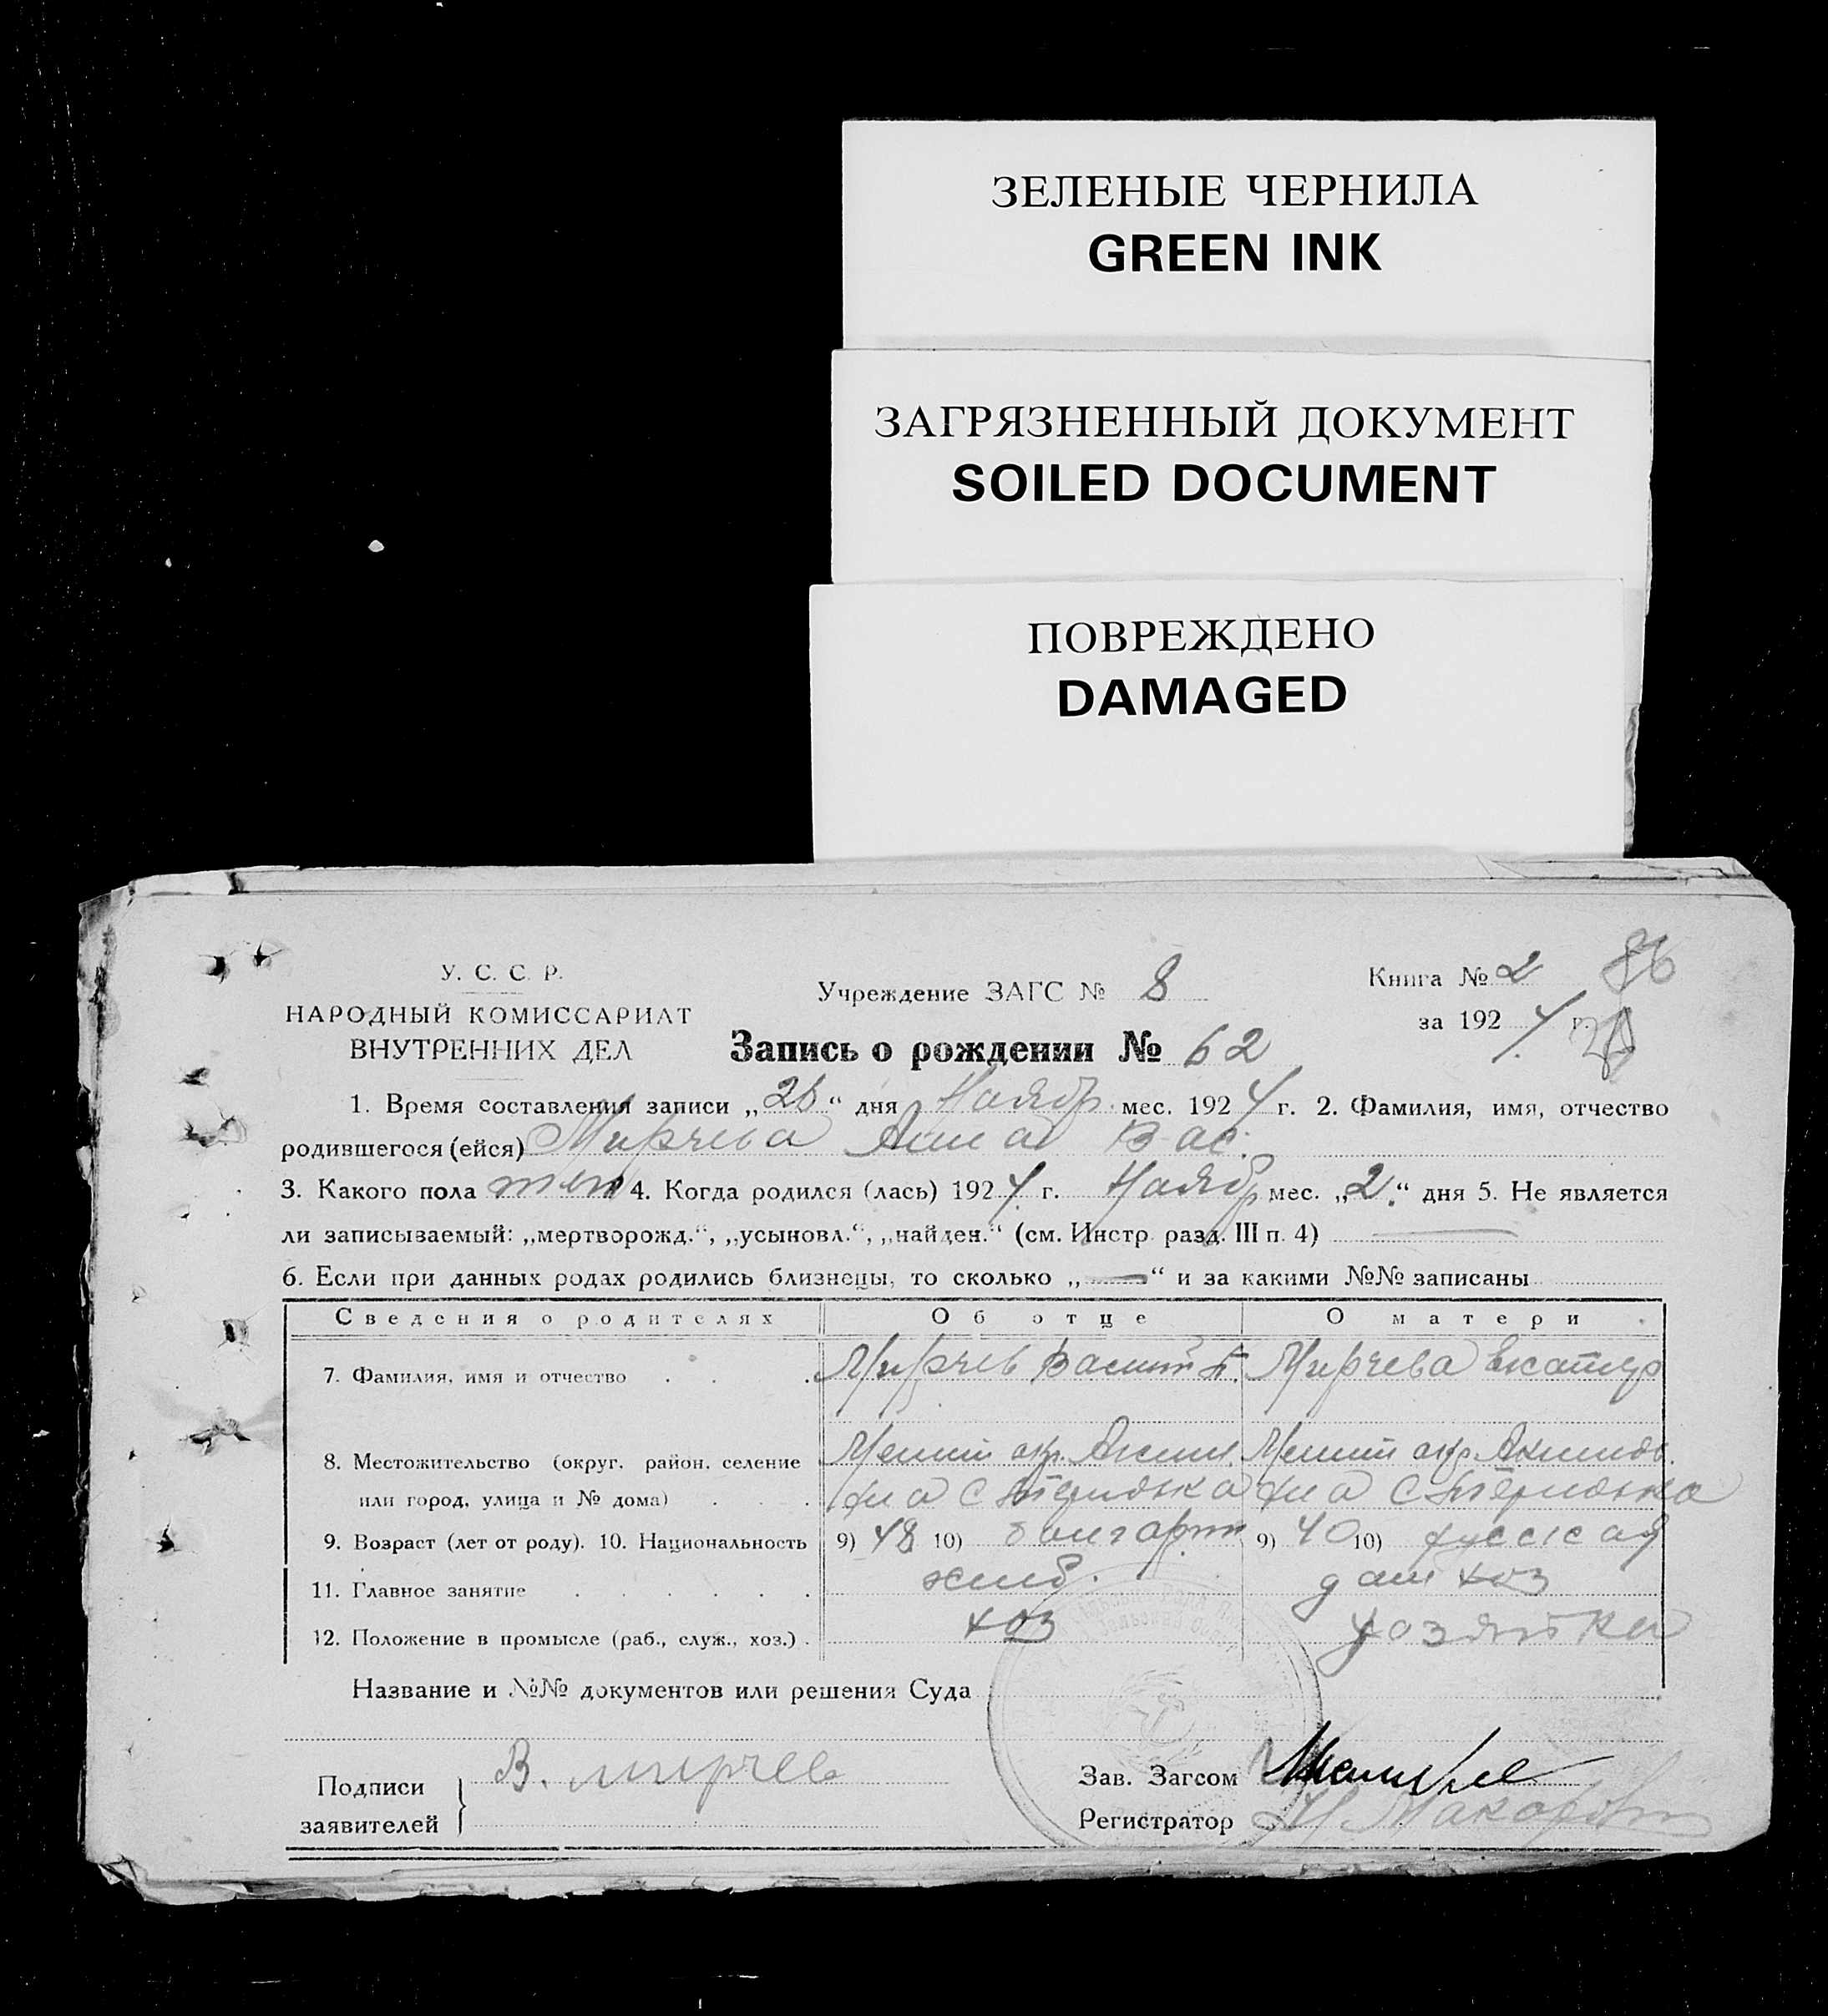 ЗЕЛЕНЫЕ ЧЕРНИЛА
GREEN INK
ЗАГРЯЗНЕННЫЙ ДОКУМЕНТ
SOILED DOCUMENT
ПОВРЕЖДЕНО
DAMAGED
У. С. С. Р.
НАРОДНЫЙ КОМИССАРИАТ
ВНУТРЕННИХ ДЕЛ
Учреждение ЗАГС № 8
Книга № 2
86
за 1924 г.
Запись о рождении № 62
1. Время составления записи „26“ дня Наябр мес. 1924 г. 2. Фамилия, имя, отчество
родившегося (ейся) Мирчева Анна Вас.
3. Какого пола жен 4. Когда родился (лась) 1924 г. Наябр мес. „2“ дня 5. Не является
ли записываемый: „мертворожд.“, „усыновл.“, „найден.“ (см. Инстр. разд. III п. 4)
6. Если при данных родах родились близнецы, то сколько „—“ и за какими №№ записаны
Сведения о родителях Об отце О матери
7. Фамилия, имя и отчество Мирчев Василий Мирчева Екатер
8. Местожительство (округ, район, селение Мелит окр. Мелит окр.
или город, улица и № дома)
9. Возраст (лет от роду). 10. Национальность 9) 48 10) болгарин 9) 40 10) русская
11. Главное занятие хлеб. дом хоз
12. Положение в промысле (раб., служ., хоз.) хоз хозяйка
Название и №№ документов или решения Суда
Подписи заявителей В. мирчев
Зав. Загсом
Регистратор